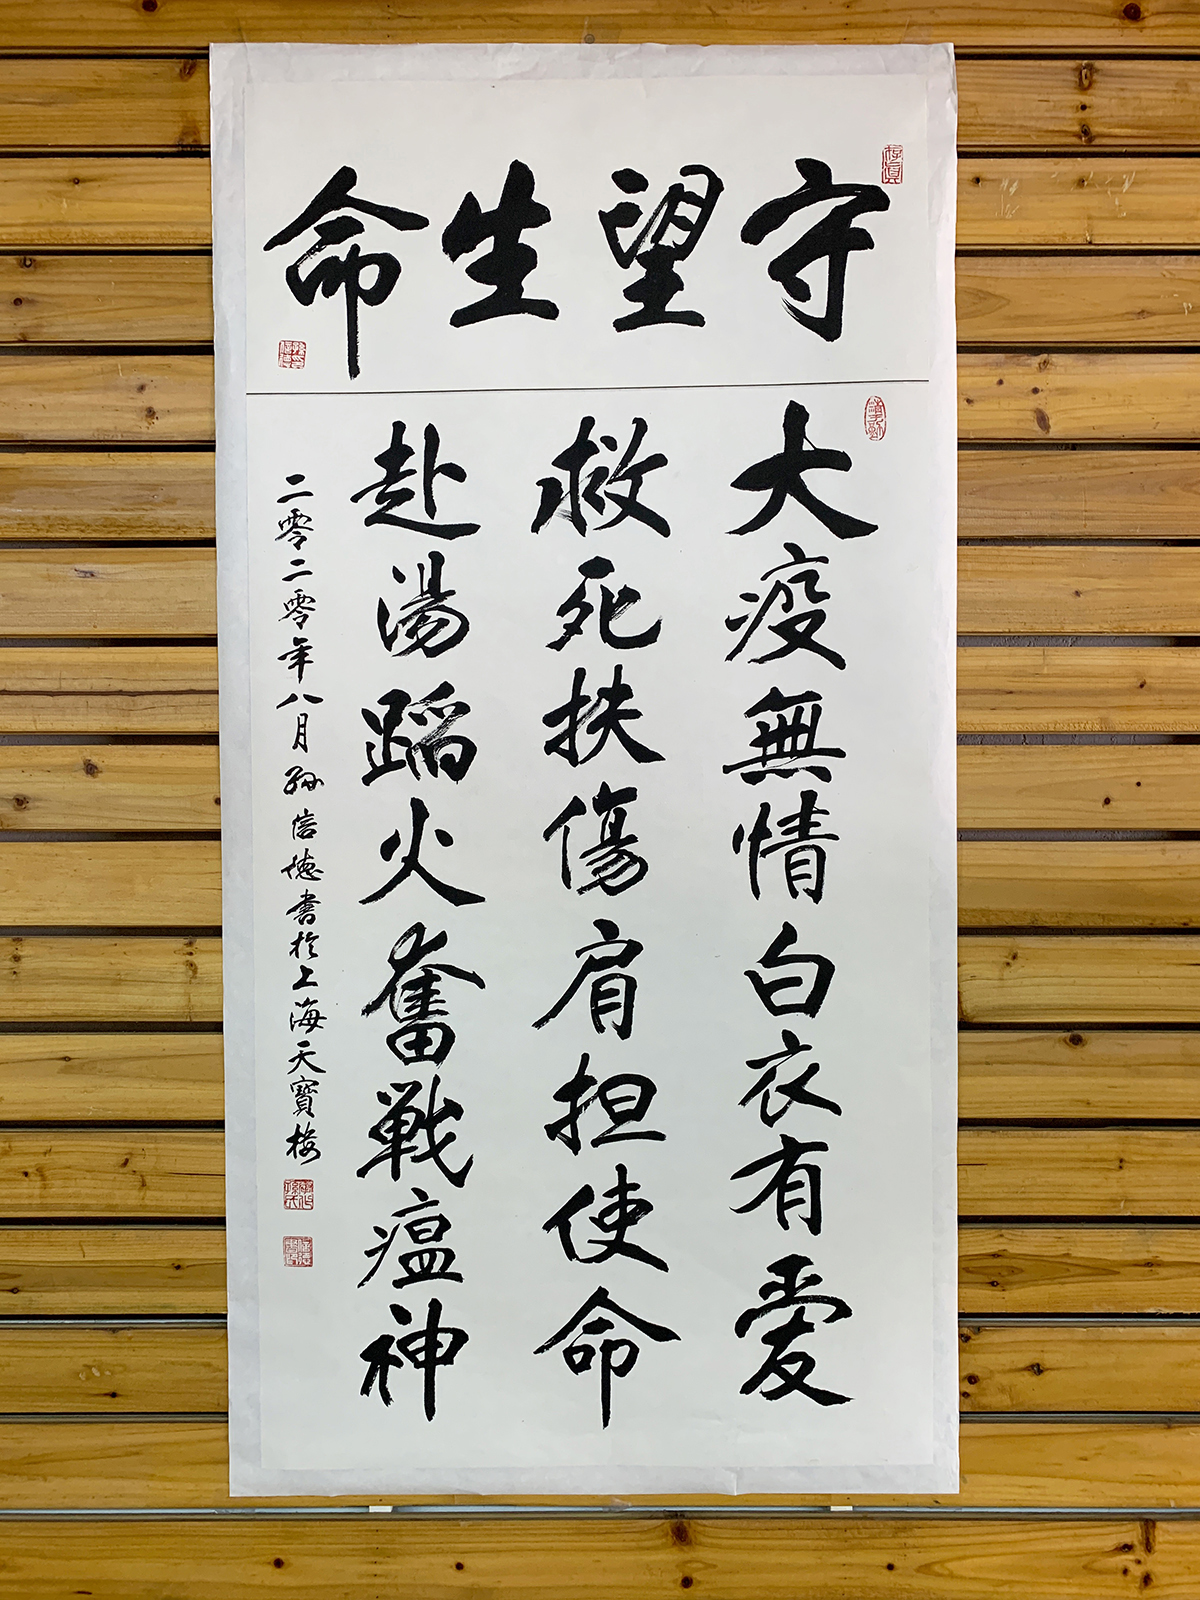 守望生命
大疫無情白衣有愛
救死扶傷肩担使命
赴湯蹈火奮戰瘟神
二零二零年八月孫信德書於上海天寶樓